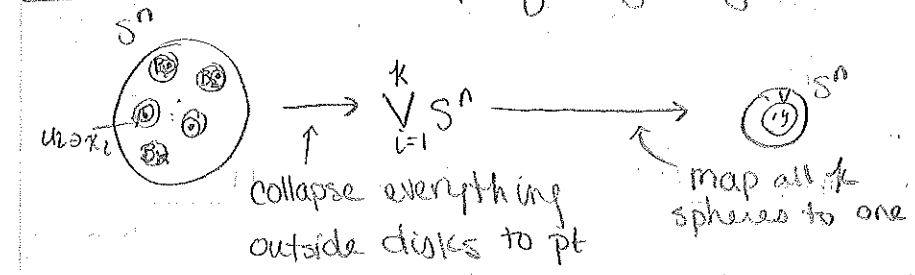 Sⁿ
B₂
Bₖ
U₂∋x₂
k
⋁ Sⁿ
i=1
V
y
Sⁿ
collapse everything
outside disks to pt
map all k
spheres to one